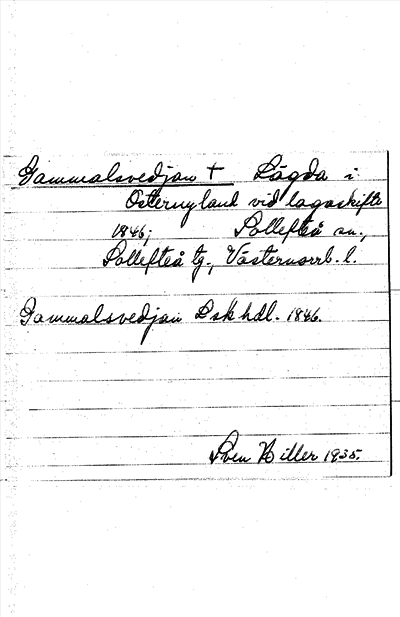 Gammalsvedjan + Lägda i
Östernyland vid lagaskifte
1846; Sollefteå sn.,
Sollefteå tg., Västernorrl. l.
Gammalsvedjan Lskhdl. 1846.
Sven Hiller 1935.